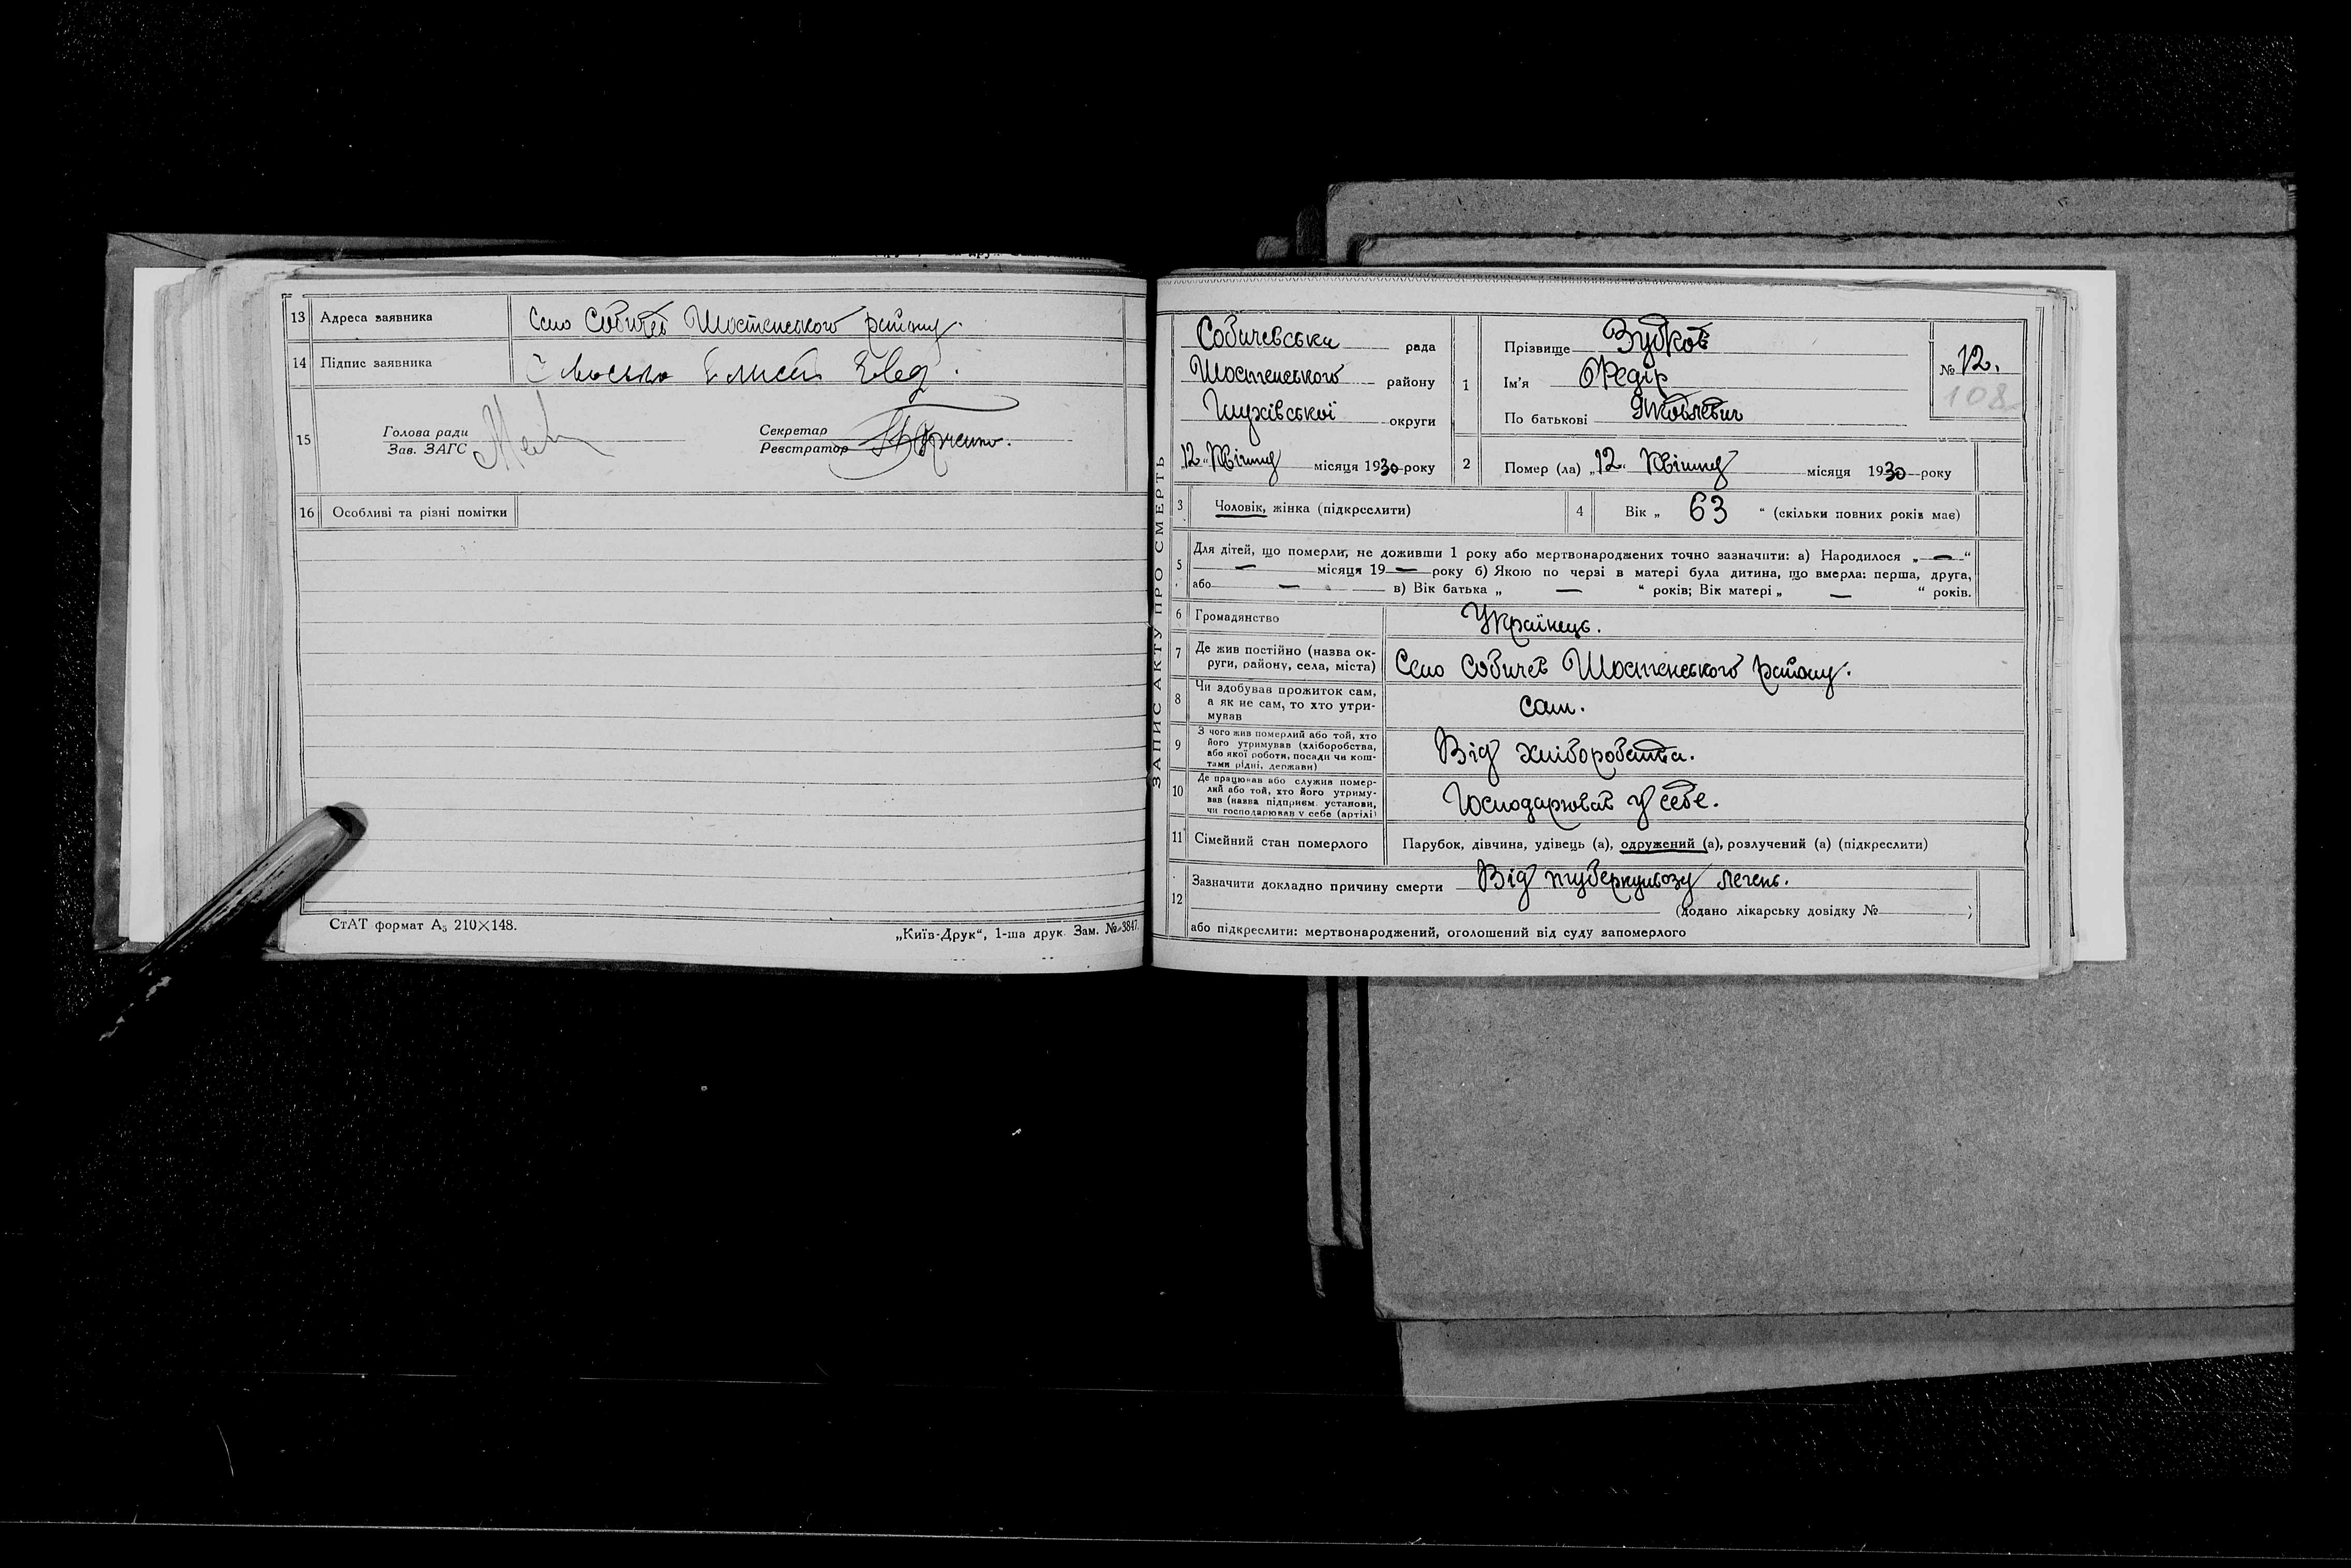 13 Адреса заявника Село Собичев Шостенського району.
14 Підпис заявника
15 Голова ради
Зав. ЗАГС
Секретар
Реєстратор
16 Особливі та різні помітки
СтАТ формат А5 210×148.
„Київ-Друк“, 1-ша друк. Зам. № 3847.
ЗАПИС АКТУ ПРО СМЕРТЬ
Собичевська рада
Шостенського району
Глухівської округи
12 „ Квітня місяця 1930 року
1 Прізвище Зубков
Ім'я Федір
По батькові Яковлевич
№ 12.
108
2 Помер (ла) „12„ Квітня місяця 1930 року
3 Чоловік, жінка (підкреслити)
4 Вік „ 63 “ (скільки повних років має)
5 Для дітей, що померли, не доживши 1 року або мертвонароджених точно зазначити: а) Народилося „ — “
— місяця 19 — року б) Якою по черзі в матері була дитина, що вмерла: перша, друга,
або — в) Вік батька „ — “ років; Вік матері „ — “ років.
6 Громадянство Українець.
7 Де жив постійно (назва ок-
руги, району, села, міста) Село Собичев Шостенського району.
8 Чи здобував прожиток сам,
а як не сам, то хто утри-
мував сам.
9 З чого жив померлий або той, хто
його утримував (хліборобства,
або якої роботи, посади чи кош-
тами рідні, держави) Від хліборобства.
10 Де працював або служив помер-
лий або той, хто його утриму-
вав (назва підприєм. установи,
чи господарював у себе (артілі) Господарював у себе.
11 Сімейний стан померлого Парубок, дівчина, удівець (а), одружений (а), розлучений (а) (підкреслити)
12 Зазначити докладно причину смерти Від туберкульозу легень.
(додано лікарську довідку № )
або підкреслити: мертвонароджений, оголошений від суду запомерлого